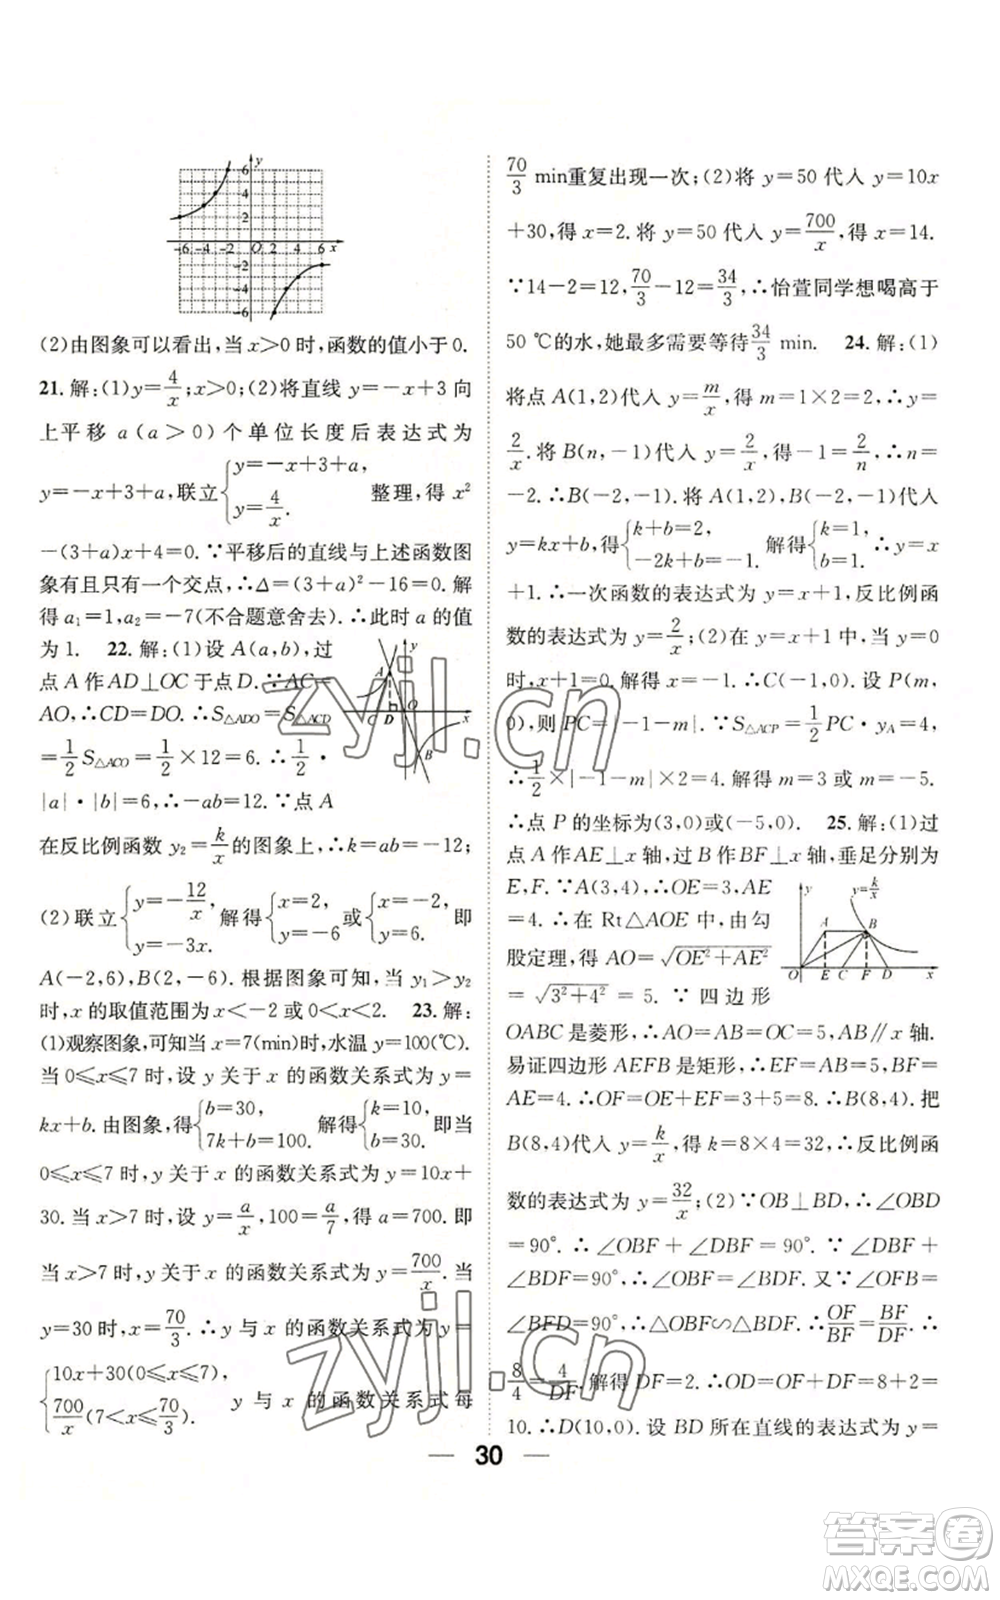 y
6
4
2
-6 -4 -2 O 2 4 6 x
-2
-4
-6
(2)由图象可以看出,当 x>0 时,函数的值小于 0.
21. 解:(1)y=4/x;x>0;(2)将直线 y=-x+3 向
上平移 a(a>0)个单位长度后表达式为
y=-x+3+a,联立{y=-x+3+a, y=4/x. 整理,得 x²
-(3+a)x+4=0.∵平移后的直线与上述函数图
象有且只有一个交点,∴Δ=(3+a)²-16=0.解
得 a₁=1,a₂=-7(不合题意舍去).∴此时 a 的值
为 1. 22. 解:(1)设 A(a,b),过
点 A 作 AD⊥OC 于点 D.∵AC=
AO,∴CD=DO.∴S△ADO=S△ACD
=1/2S△ACO=1/2×12=6.∴1/2·
|a|·|b|=6,∴-ab=12.∵点 A
y
A
C D O x
B
在反比例函数 y₂=k/x的图象上,∴k=ab=-12;
(2)联立{y=-12/x, y=-3x. 解得{x=2, y=-6 或{x=-2, y=6, 即
A(-2,6),B(2,-6).根据图象可知,当 y₁>y₂
时,x 的取值范围为 x<-2 或 0<x<2. 23. 解:
(1)观察图象,可知当 x=7(min)时,水温 y=100(℃).
当 0≤x≤7 时,设 y 关于 x 的函数关系式为 y=
kx+b.由图象,得{b=30, 7k+b=100. 解得{k=10, b=30. 即当
0≤x≤7 时,y 关于 x 的函数关系式为 y=10x+
30.当 x>7 时,设 y=a/x,100=a/7,得 a=700.即
当 x>7 时,y 关于 x 的函数关系式为 y=700/x.当
y=30 时,x=70/3.∴y 与 x 的函数关系式为 y=
{10x+30(0≤x≤7), 700/x(7<x≤70/3). y 与 x 的函数关系式每
70/3 min重复出现一次;(2)将 y=50 代入 y=10x
+30,得 x=2.将 y=50 代入 y=700/x,得 x=14.
∵14-2=12,70/3-12=34/3,∴怡萱同学想喝高于
50 ℃的水,她最多需要等待34/3 min. 24. 解:(1)
将点 A(1,2)代入 y=m/x,得 m=1×2=2,∴y=
2/x.将 B(n,-1)代入 y=2/x,得-1=2/n,∴n=
-2.∴B(-2,-1).将 A(1,2),B(-2,-1)代入
y=kx+b,得{k+b=2, -2k+b=-1. 解得{k=1, b=1. ∴y=x
+1.∴一次函数的表达式为 y=x+1,反比例函
数的表达式为 y=2/x;(2)在 y=x+1 中,当 y=0
时,x+1=0,得 x=-1.∴C(-1,0).设 P(m,
0),则 PC=|-1-m|.∵S△ACP=1/2PC·yA=4,
∴1/2×|-1-m|×2=4.解得 m=3 或 m=-5.
∴点 P 的坐标为(3,0)或(-5,0). 25. 解:(1)过
点 A 作AE⊥x 轴,过 B 作 BF⊥x 轴,垂足分别为
E,F.∵A(3,4),∴OE=3,AE
=4.∴在 Rt△AOE 中,由勾
股定理,得 AO=√OE²+AE²
=√3²+4²=5.∵四边形
y y=k/x
A B
O E C F D x
OABC 是菱形,∴AO=AB=OC=5,AB∥x 轴.
易证四边形 AEFB 是矩形,∴EF=AB=5,BF=
AE=4.∴OF=OE+EF=3+5=8.∴B(8,4).把
B(8,4)代入 y=k/x,得 k=8×4=32,∴反比例函
数的表达式为 y=32/x;(2)∵OB⊥BD,∴∠OBD
=90°.∴∠OBF+∠DBF=90°.∵∠DBF+
∠BDF=90°,∴∠OBF=∠BDF.又∵∠OFB=
∠BFD=90°,∴△OBF∽△BDF.∴OF/BF=BF/DF.∴
8/4=4/DF.解得 DF=2.∴OD=OF+DF=8+2=
10.∴D(10,0).设 BD 所在直线的表达式为 y=
— 30 —
zyjl.cn
zyjl.cn
答案卷
MXQE.COM